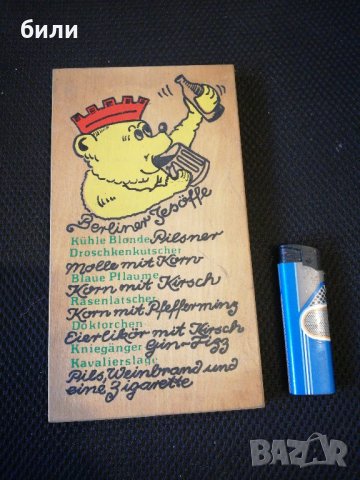 били
Berliner Jesöffe
Kühle Blonde Pilsner
Droschkenkutscher
Molle mit Korn
Blaue Pflaume
Korn mit Kirsch
Rasenlatscher
Korn mit Pfefferming
Doktorchen
Eierlikör mit Kirsch
Kniegänger Gin-Fizz
Kavalierslage
Pils, Weinbrand und
eine Zigarette
BAZAR